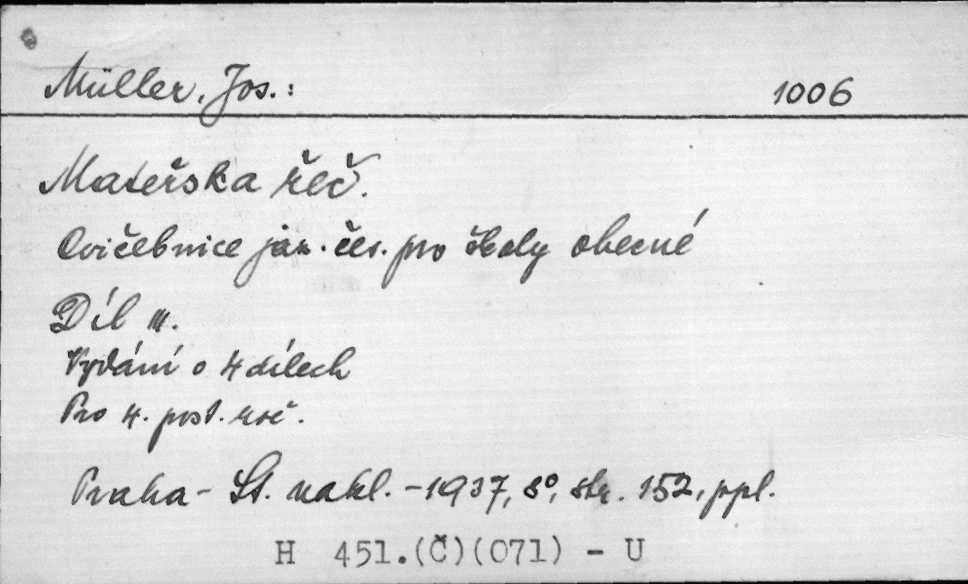 Müller, Jos.: 1006
Mateřska řeč.
Cvičebnice jaz. čes. pro školy obecné
Díl III.
Vydání o 4 dílech
Pro 4. post. roč.
Praha - St. nakl. - 1937, 8°, str. 152, ppl.
H 451.(Č)(071) - U